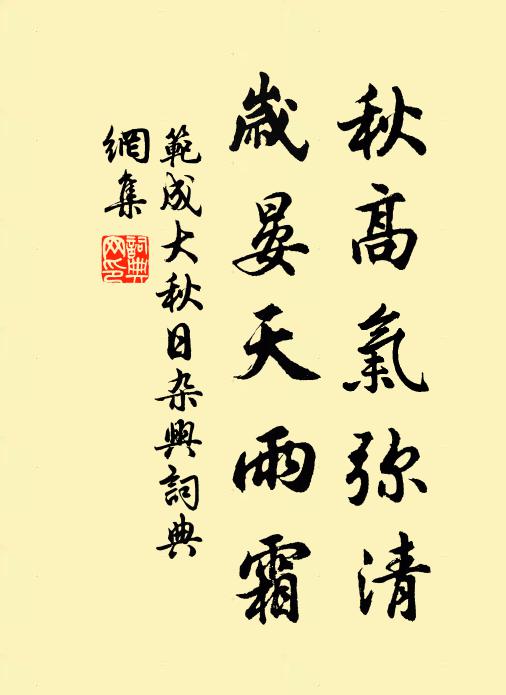 秋高氣弥清
歲晏天雨霜
範成大秋日杂興詞典
網集
詞典网印